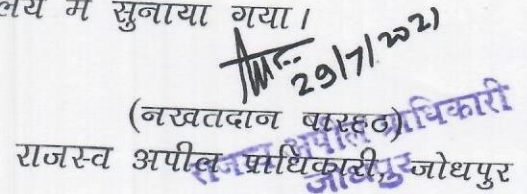 लय में सुनाया गया।
29/7/2021
(नखतदान बारहठ)
राजस्व अपील प्राधिकारी, जोधपुर
राजस्व अपील प्राधिकारी
जोधपुर